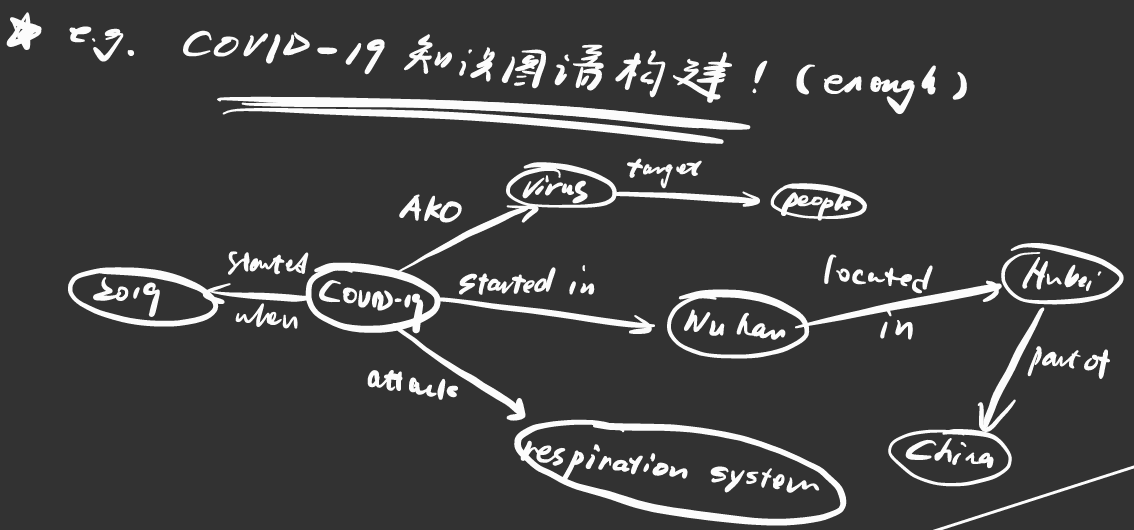 e.g. COVID-19 知识图谱构建！(enough)
virus
target
people
AKO
started
when
2019
COVID-19
started in
Wuhan
located
in
Hubei
part of
China
attack
respiration system